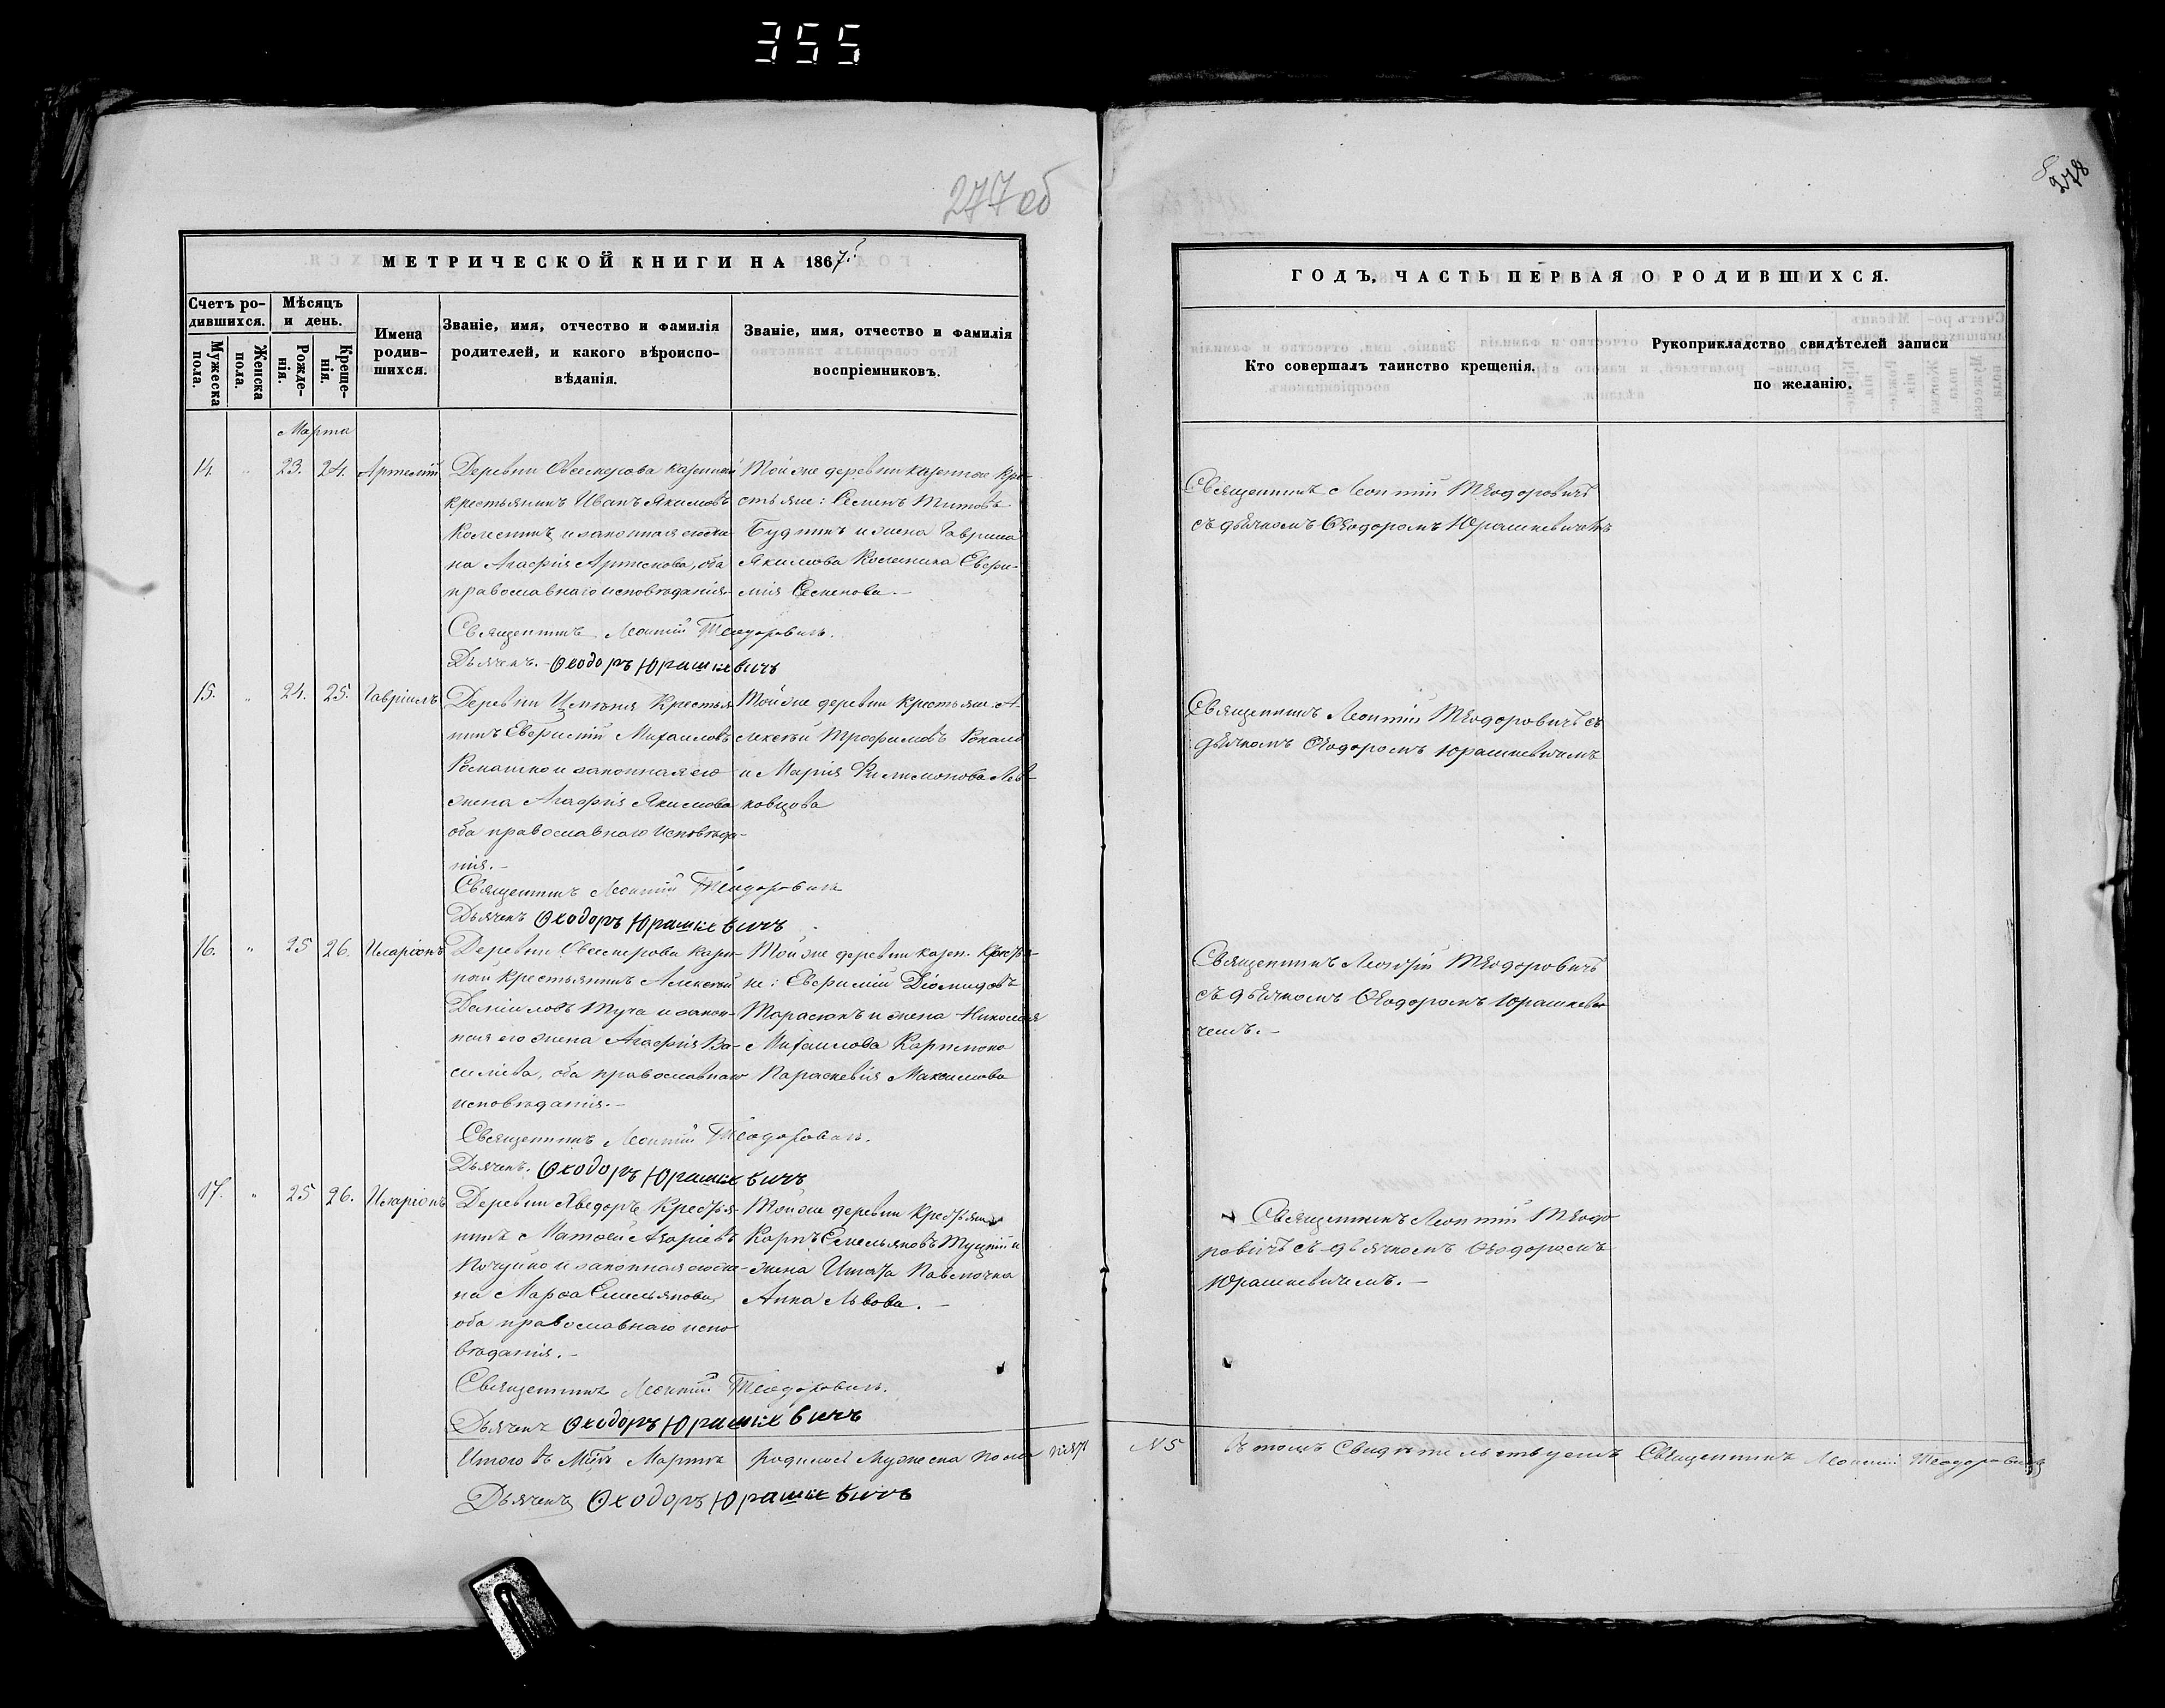 355
277 об
278
МЕТРИЧЕСКОЙ КНИГИ НА 1867
Счетъ ро-
дившихся.
Мужеска
пола.
Женска
пола.
Мѣсяцъ
и день.
Рожде-
нія.
Креще-
нія.
Имена
родив-
шихся.
Званіе, имя, отчество и фамилія
родителей, и какого вѣроиспо-
вѣданія.
Званіе, имя, отчество и фамилія
воспріемниковъ.
ГОДЪ, ЧАСТЬ ПЕРВАЯ О РОДИВШИХСЯ.
Кто совершалъ таинство крещенія.
Рукоприкладство свидѣтелей записи
по желанію.
Марта
14 " 23. 24. Артемій
Деревни
крестьянинъ Иванъ Якимовъ
и законная его же-
на Агафія оба
православнаго исповѣданія
Священникъ Леонтій Теодоровичъ.
Дьячекъ. Ѳеодоръ Юрашкевичъ
Той же деревни казенные кре-
стьяне: Семенъ Титовъ
и жена Гавріила
Якимова Евфи-
мія Семенова.
Священникъ Леонтій Теодоровичъ
съ дьячкомъ Ѳеодоромъ Юрашкевичемъ
15. " 24. 25. Гавріилъ
Деревни Крестья
нинъ Евфимій Михаиловъ
и законная его
жена Агафія Якимова
оба православнаго исповѣда-
нія.
Священникъ Леонтій Теодоровичъ
Дьячекъ Ѳеодоръ Юрашкевичъ
Той же деревни крестьяне: А-
лексѣй Трофимовъ
и Марія Филимонова Лев-
ковцова
Священникъ Леонтій Теодоровичъ съ
дьячкомъ Ѳеодоромъ Юрашкевичемъ
16. " 25 26. Иларіонъ
Деревни казен-
ный крестьянинъ Алексѣй
Даніиловъ Туча и закон-
ная его жена Агафія Ва-
сильева, оба православнаго
исповѣданія.
Священникъ Леонтій Теодоровичъ.
Дьячекъ. Ѳеодоръ Юрашкевичъ
Той же деревни казен. крестья-
не: Евфимій Діомидовъ
Тарасюкъ и жена Николая
Михаилова
Параскевія Максимова
Священникъ Леонтій Теодоровичъ
съ дьячкомъ Ѳеодоромъ Юрашкеви
чемъ.
17. " 25 26. Иларіонъ
Деревни Крестья-
нинъ Матѳей Азаріевъ
и законная его же-
на Марѳа Емельянова,
оба православнаго испо
вѣданія.
Священникъ Леонтій Теодоровичъ.
Дьячекъ Ѳеодоръ Юрашкевичъ
Той же деревни Крестьяне
Карпъ Емельяновъ и
жена Игната Павлючка
Анна Львова.
Священникъ Леонтій Теодо
ровичъ съ дьячкомъ Ѳеодоромъ
Юрашкевичемъ.
Итого въ Мцѣ Мартѣ родилось Мужеска пола пять № 5 въ томъ Свидѣтельствуемъ Священникъ Леонтій Теодоровичъ
Дьячекъ Ѳеодоръ Юрашкевичъ